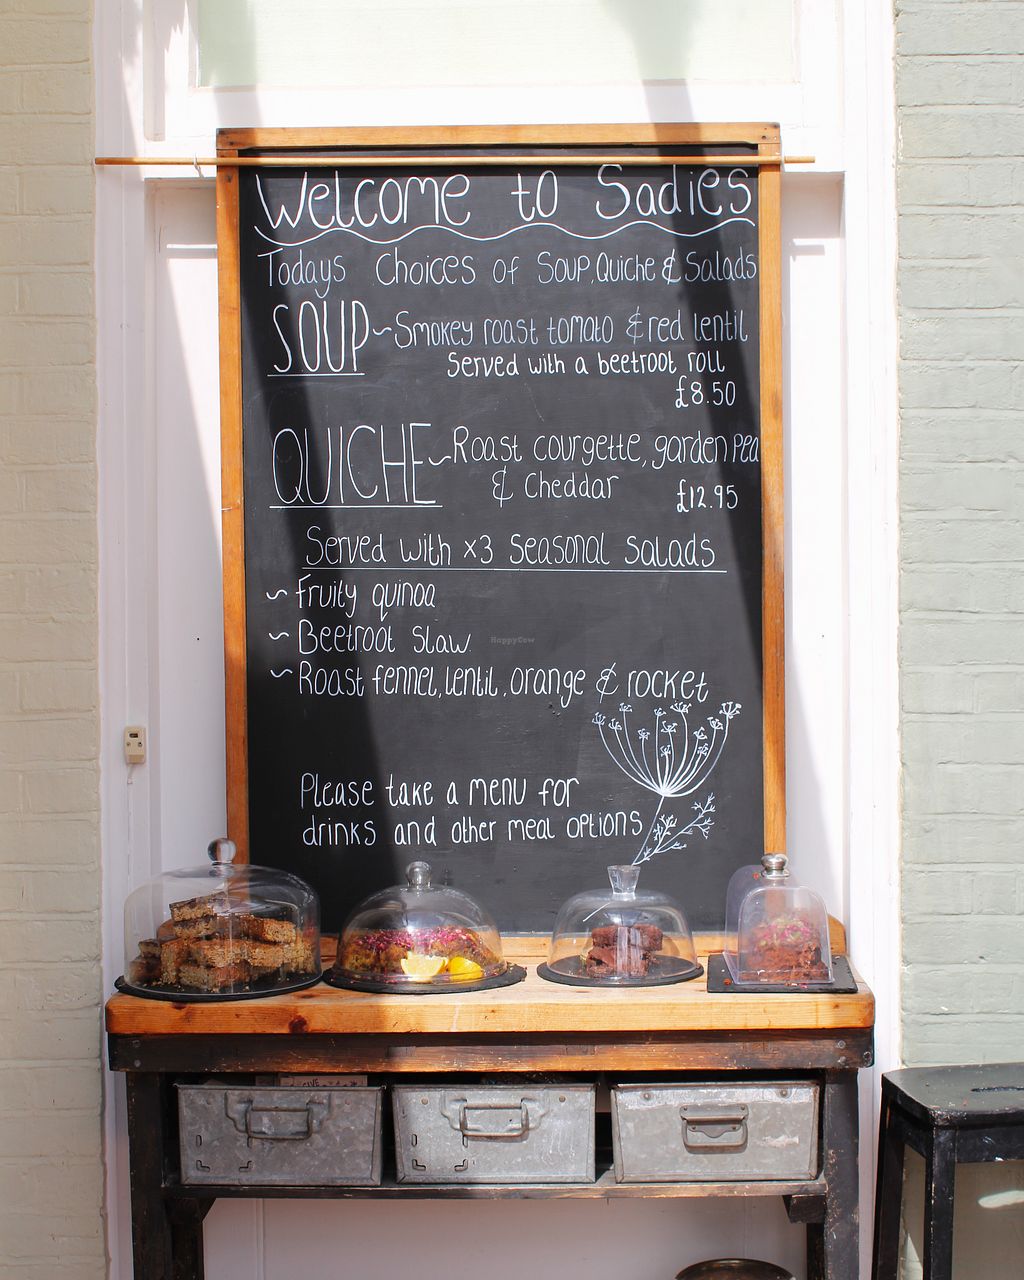 Welcome to Sadies
Todays Choices of Soup, Quiche & Salads
SOUP ~ Smokey roast tomato & red lentil
Served with a beetroot roll
£8.50
QUICHE ~ Roast courgette, garden pea
& Cheddar
£12.95
Served with x3 Seasonal Salads
~ Fruity quinoa
~ Beetroot Slaw
HappyCow
~ Roast fennel, lentil, orange & rocket
Please take a menu for
drinks and other meal options